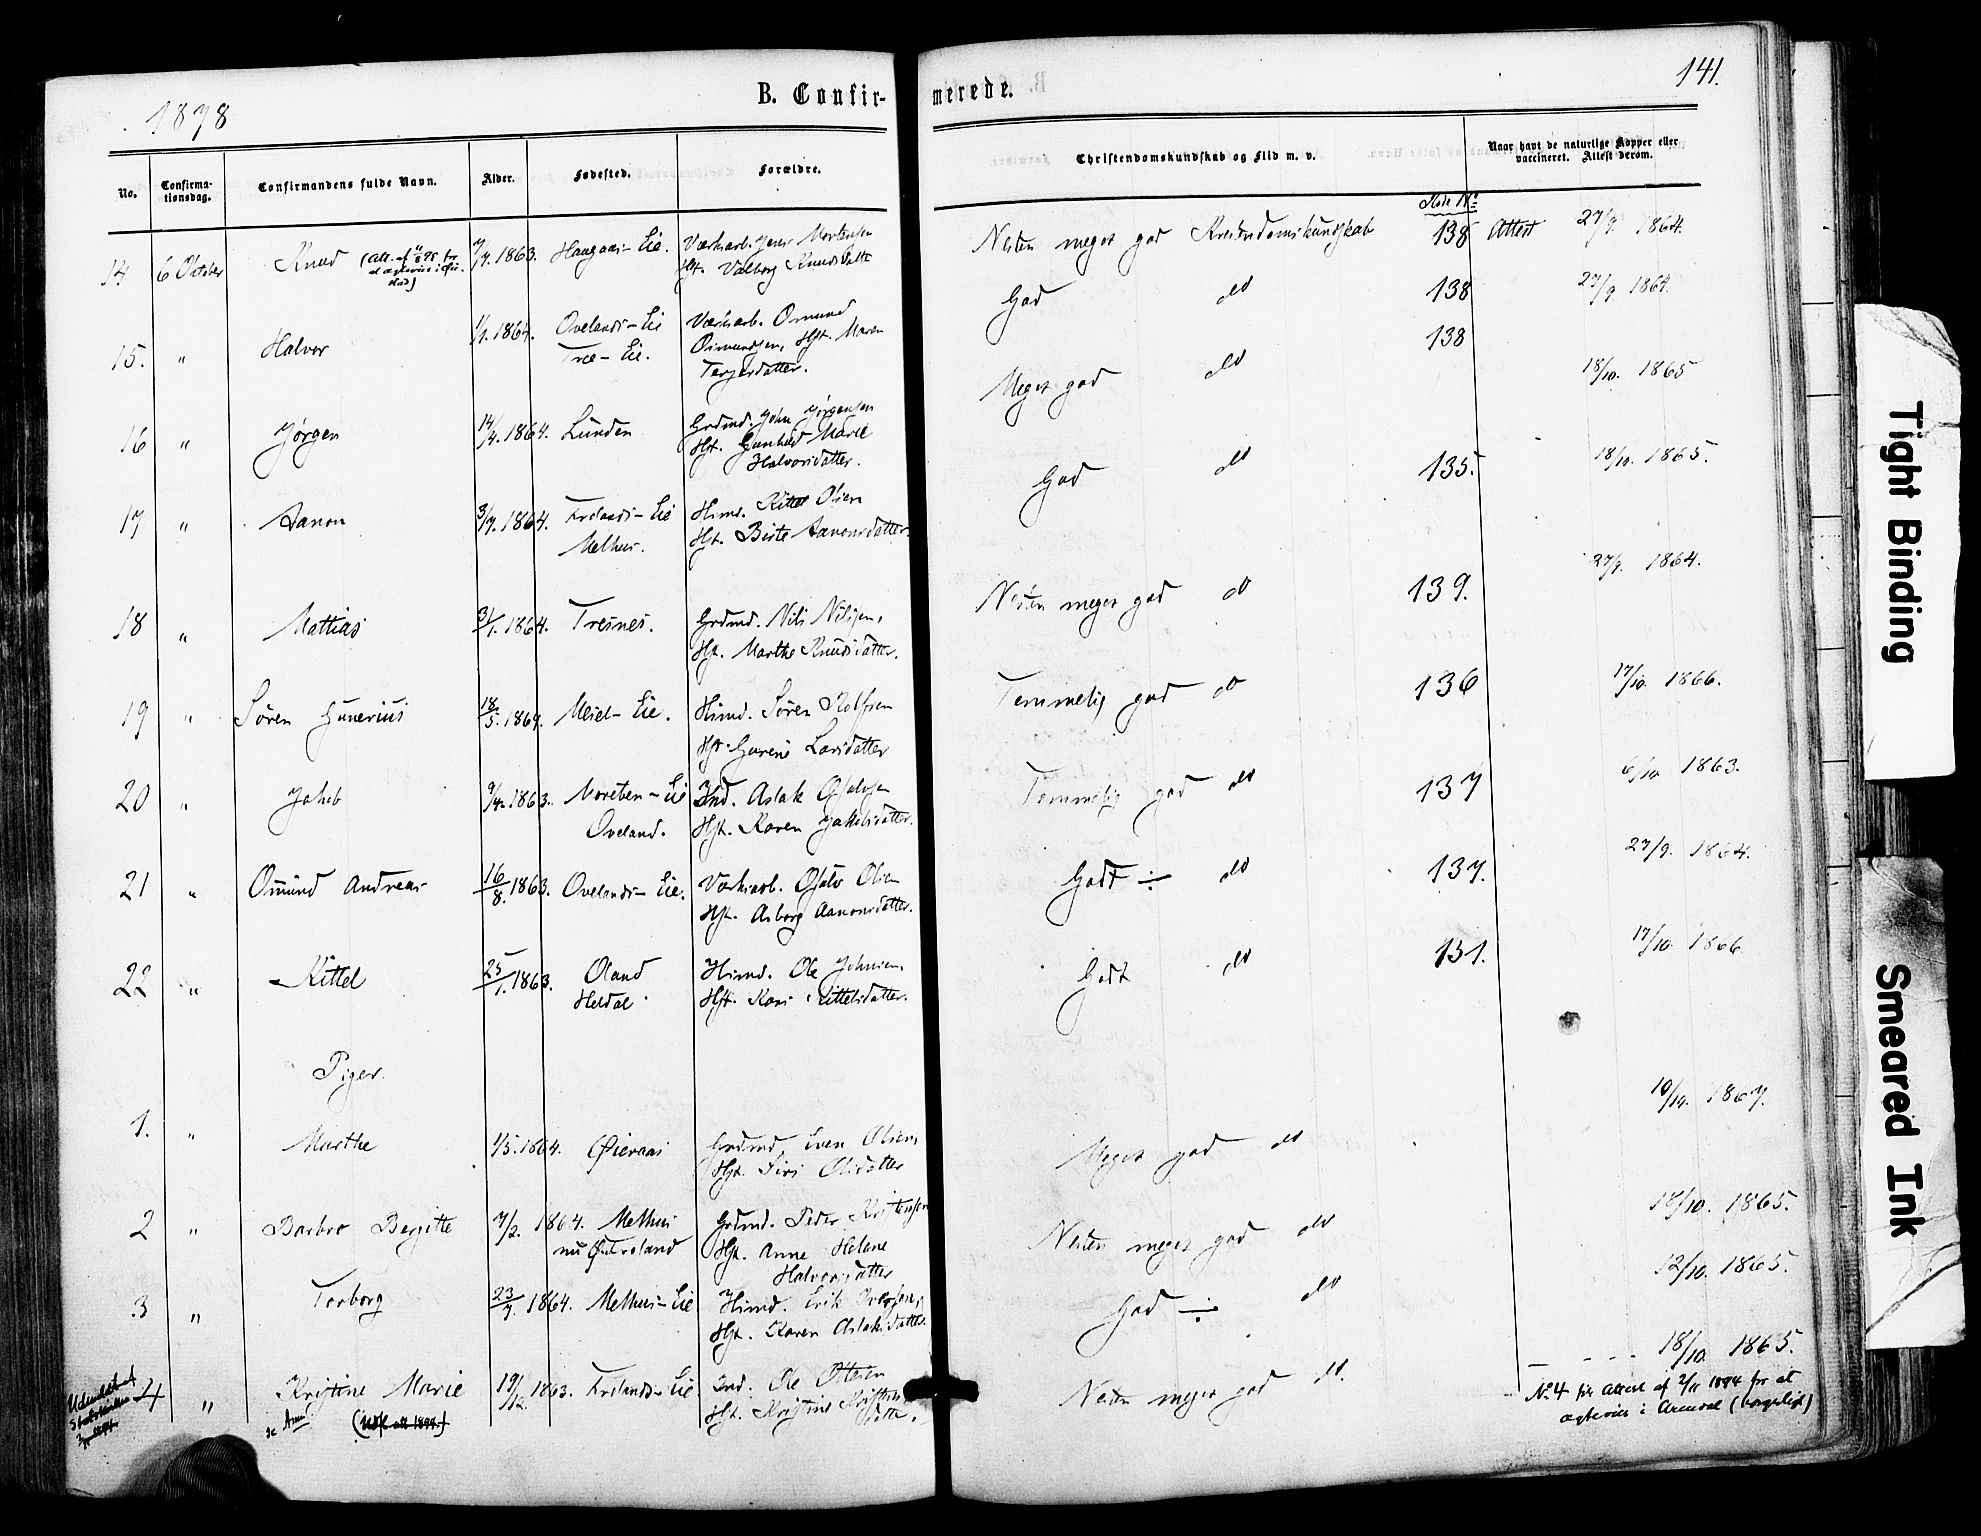 1878
B. Confirmerede.
141.
No.
Confirma-
tionsdag.
Confirmandens fulde Navn.
Alder.
Fødested.
Forældre.
Christendomskundskab og Flid m. v.
Naar havt de naturlige Kopper eller
vaccineret. Attest derom.
Side No
14 6 October Knud 7/7. 1863. Haugaas-Eie. Værksarb. Jens Mortensen
Hst. Valborg Knudsdatter
Nesten meget god Kristendomskundskab 138 Attest 27/9. 1864.
15. " Halvor 1/1. 1864. Ovelands-Eie Værksarb. Osmund
Træ-Eie. Osmundsen, Hst. Maren
Terjesdatter.
God do 138 27/9. 1864.
138
16 " Jørgen 14/4. 1864. Lunden Grdmd. John Jørgensen
Hst. Gunhild Marie
Halvorsdatter.
Meget god do 18/10. 1865
17 " Aanon 3/7. 1864. Frolands-Eie Husmd. Kittel Olsen
Melhus. Hst. Birte Aanonsdatter.
God do 135. 18/10. 1865.
18 " Mattias 31/1. 1864. Tresnes. Grdmd. Nils Nilsen,
Hst. Marthe Knudsdatter.
Nesten meget god do 139. 27/9. 1864.
19 " Søren Gunerius 18/5. 1864. Mesel-Eie. Husmd. Søren Rolfsen
Hst. Gurine Larsdatter
Temmelig god do 136 17/10. 1866.
20 " Jakob 9/4. 1863. Moreten-Eie Ind. Aslak Osulvsen
Oveland. Hst. Karen Jakobsdatter.
Temmelig god do 137 6/10. 1863.
21 " Osmund Andreas 16/8. 1863. Ovelands-Eie. Værksarb. Osulv Olsen
Hst. Asborg Aanonsdatter.
Godt ÷ do 137. 27/9. 1864.
22 " Kittel 25/1. 1863. Oland Husmd. Ole Johnsen,
Heldal. Hst. Kari Kittelsdatter.
Godt do 131. 17/10. 1866
Piger.
1. " Marthe 1/5. 1864. Øieraas Grdmd. Even Olsen,
Hst. Siri Olsdatter
Meget god do 10/10. 1867.
2 " Barbro Bergitte 7/2. 1864. Melhus Grdmd. Peder Kristensen
nu Østreland Hst. Anne Helene
Halvorsdatter
Nesten meget god do 18/10. 1865.
3 " Torborg 23/7. 1864. Melhus-Eie Husmd. Erik Iversen,
Hst. Karen Aslaksdatter.
God ÷ do 12/10. 1865.
4 " Kristine Marie 19/12. 1863. Frolands-Eie Ind. Ole Ottesen
Hst. Kristine Kristens
datter.
Nesten meget god do. 18/10. 1865.
No 4 fik Attest af 2/11 1894 for at
ægtevies i Arendal (borgerligt)
Tight Binding
Smeared Ink